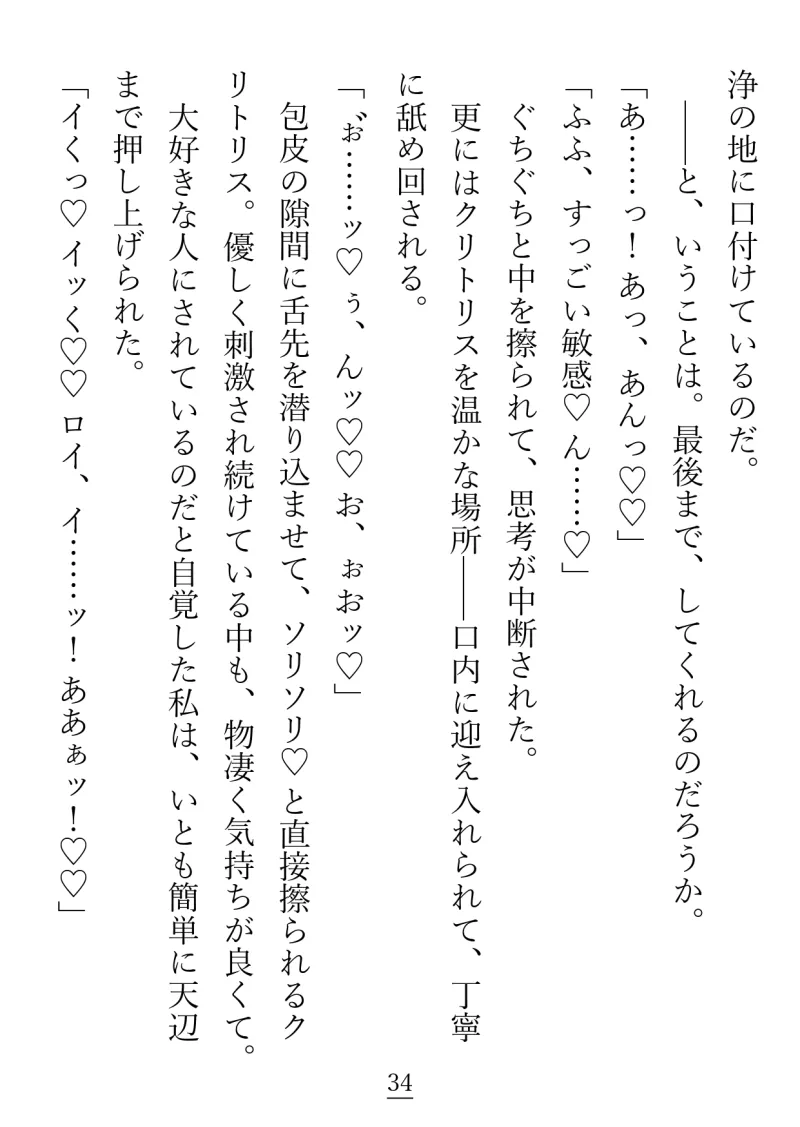 浄の地に口付けているのだ。
――と、いうことは。最後まで、してくれるのだろうか。
「あ……っ！ あっ、あんっ♡♡」
「ふふ、すっごい敏感♡ ん……♡」
ぐちぐちと中を擦られて、思考が中断された。
更にはクリトリスを温かな場所――口内に迎え入れられて、丁寧
に舐め回される。
「ぉ゛……ッ♡ ぅ、んッ♡♡ お、ぉおッ♡」
包皮の隙間に舌先を潜り込ませて、ソリソリ♡と直接擦られるク
リトリス。優しく刺激され続けている中も、物凄く気持ちが良くて。
大好きな人にされているのだと自覚した私は、いとも簡単に天辺
まで押し上げられた。
「イくっ♡ イッく♡♡ ロイ、イ……ッ！ ああぁッ！♡♡」
34